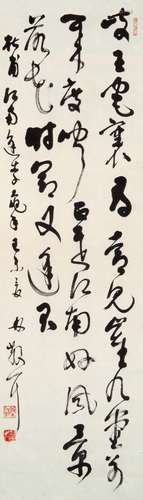 岐王宅裏尋常見崔九堂前
幾度聞正是江南好風景
落花時節又逢君
杜甫江南逢李龜年